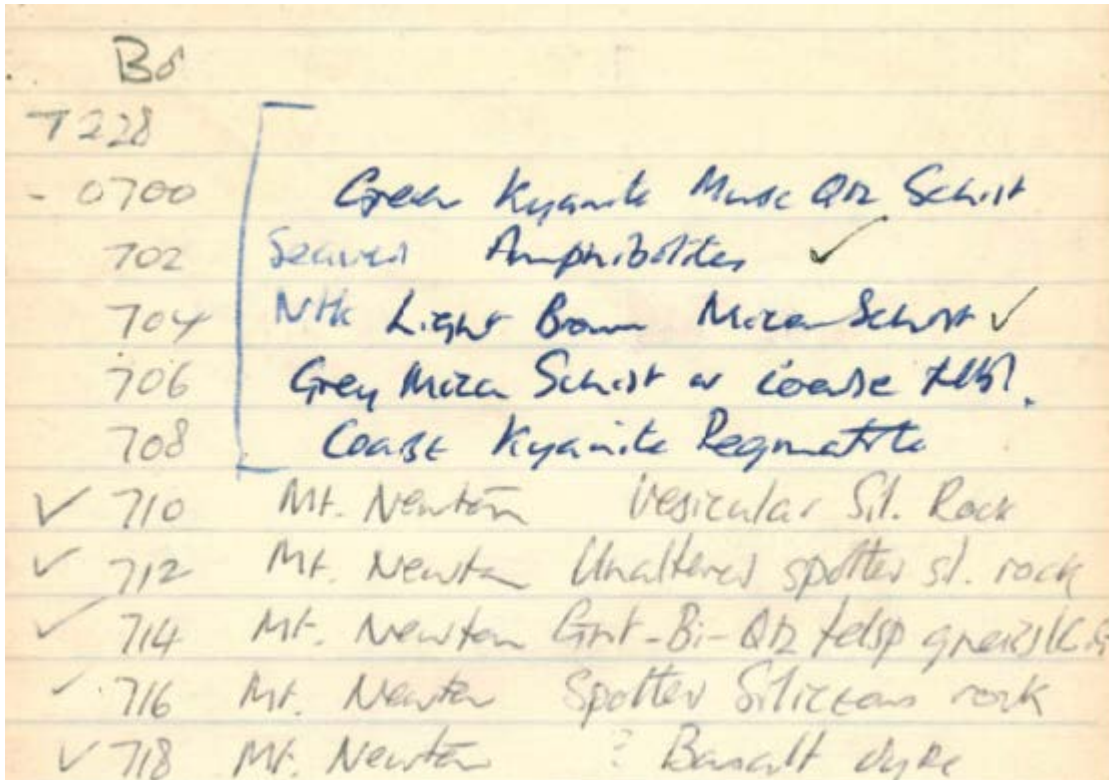 B8
T228
- 0700 Green Kyanite Musc Qtz Schist
702 Seaward Amphibolites ✓
704 Nth Light Brown Mica Schist ✓
706 Grey Mica Schist w coarse
708 Coarse Kyanite Pegmatite
✓ 710 Mt. Newton Vesicular Sil. Rock
✓ 712 Mt. Newton Unaltered spotted sl. rock
✓ 714 Mt. Newton Grnt-Bi-Qtz felsp gneiss
✓ 716 Mt. Newton Spotted Siliceous rock
✓ 718 Mt. Newton ? Basalt dyke